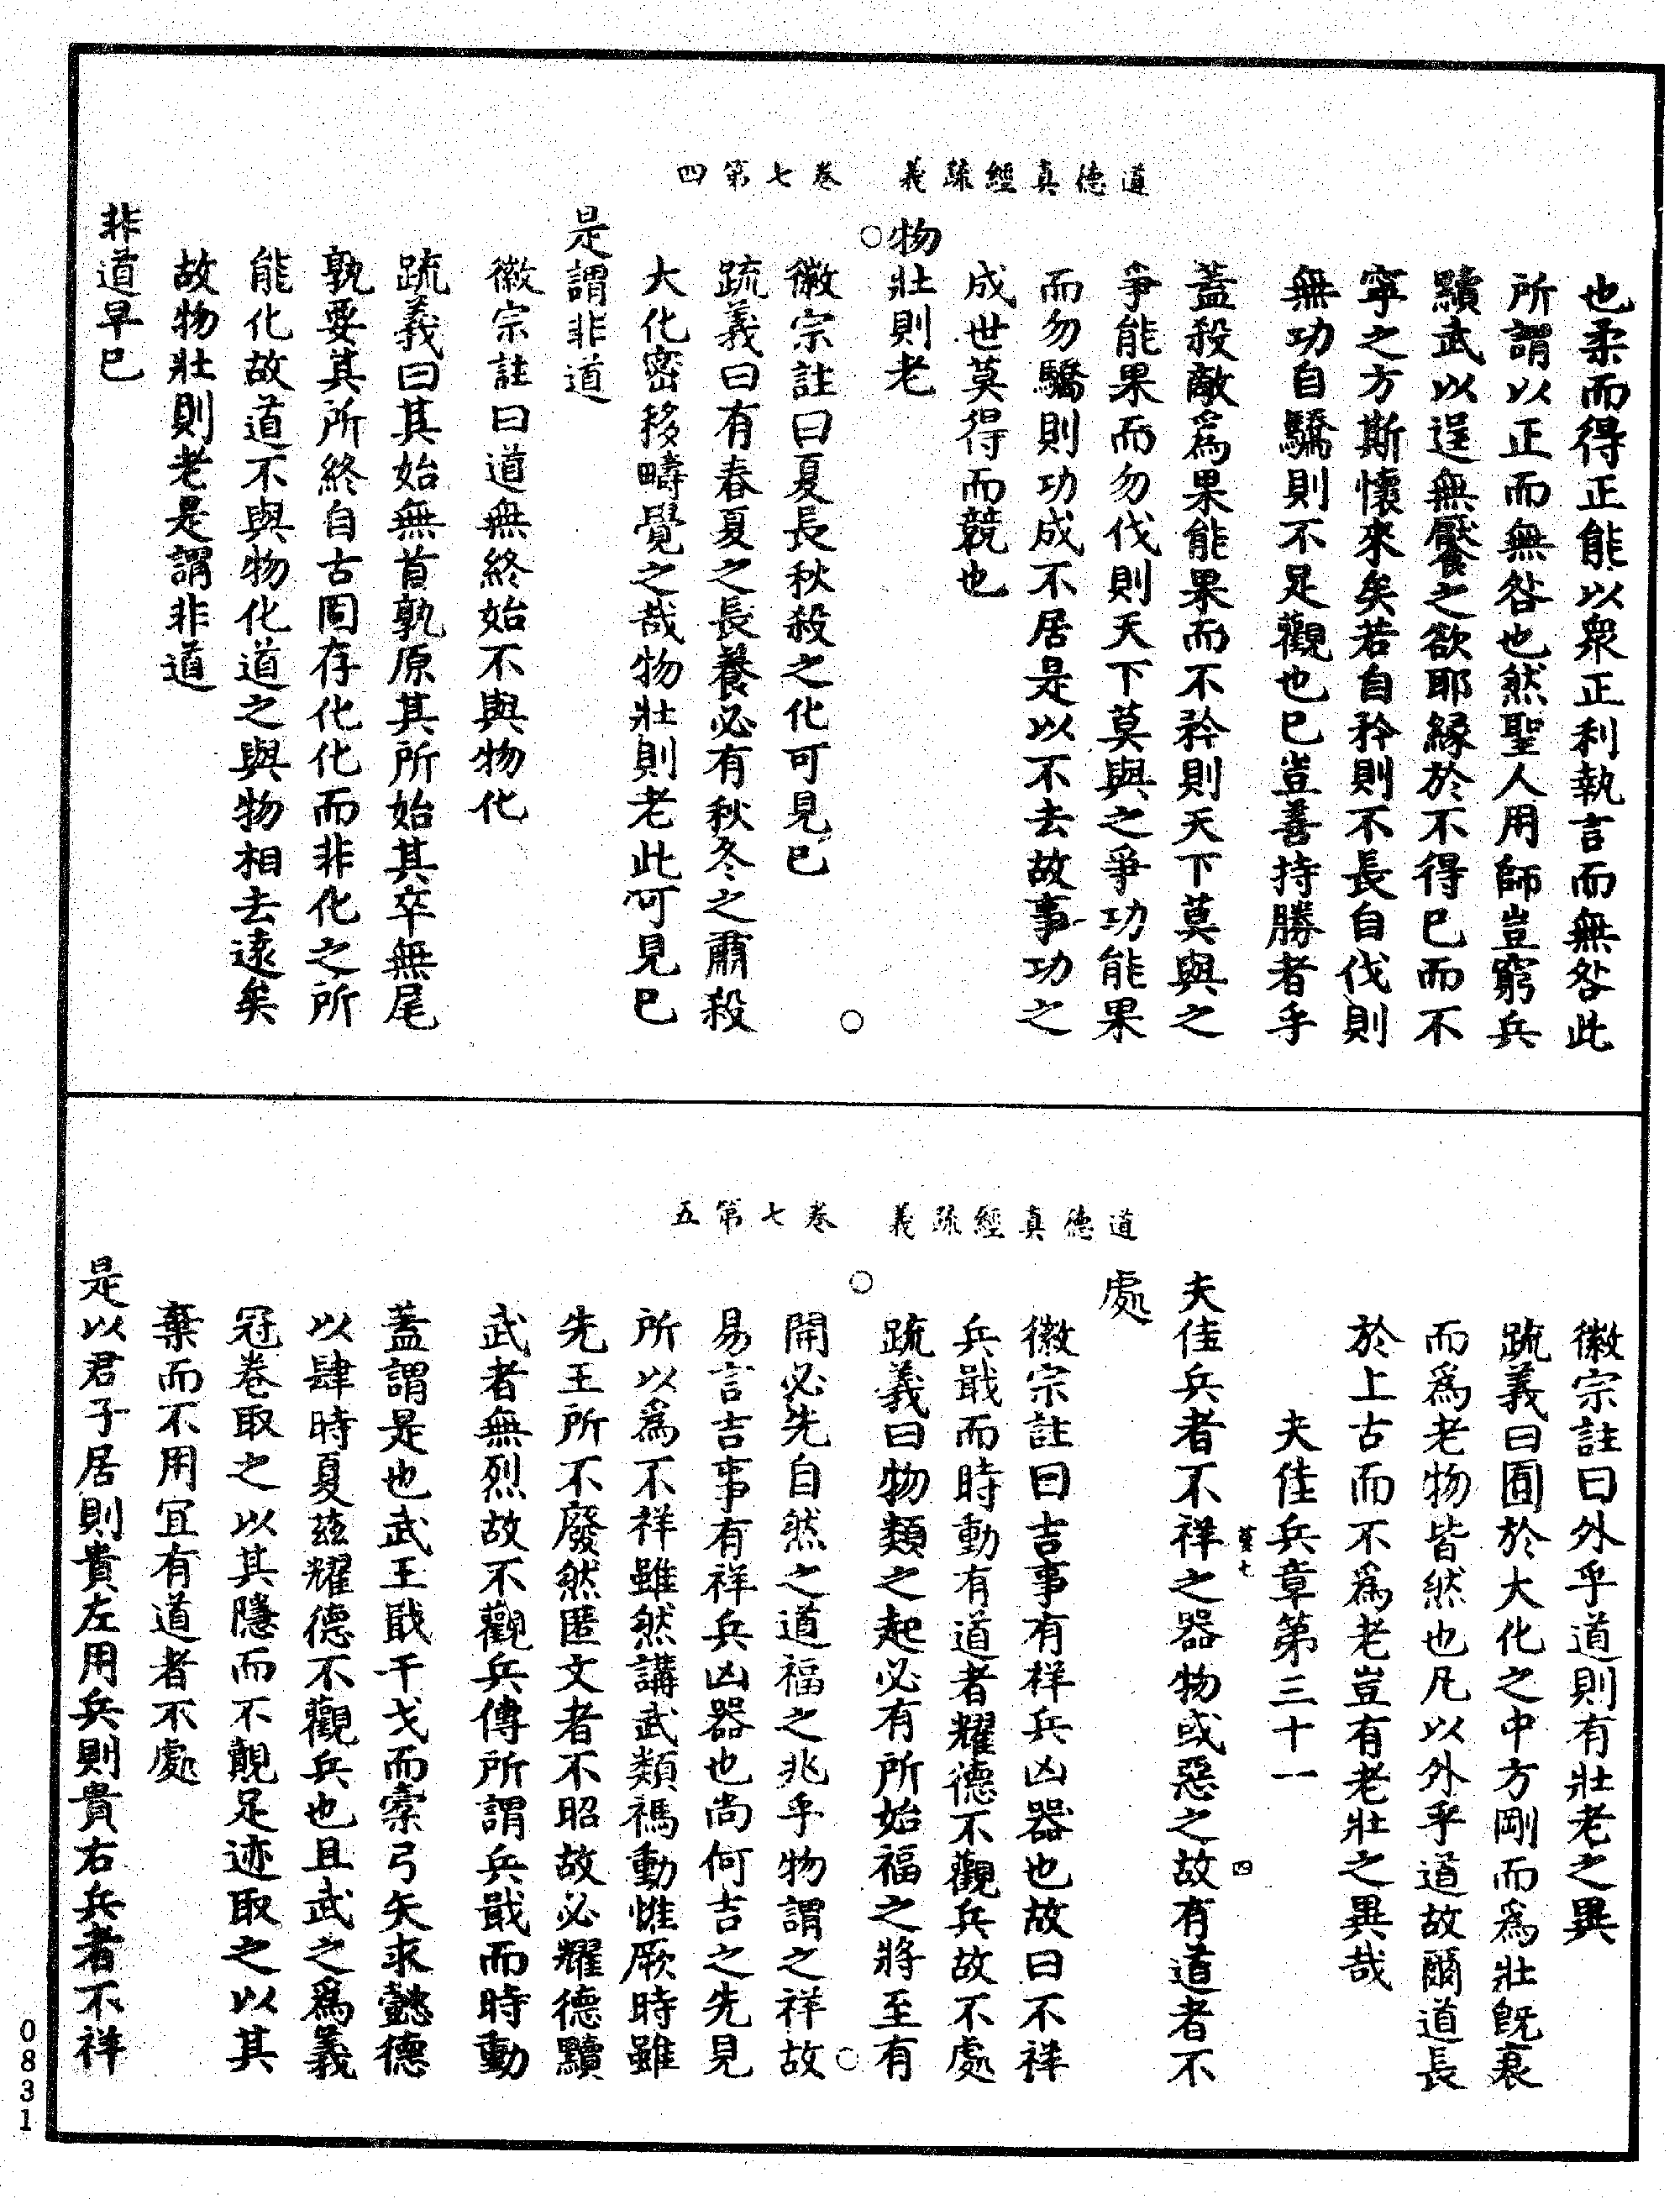 也柔而得正能以衆正利執言而無咎此
所謂以正而無咎也然聖人用師豈窮兵
黷武以逞無厭之欲耶緣於不得已而不
寧之方斯懷來矣若自矜則不長自伐則
無功自驕則不足觀也已豈善持勝者乎
蓋殺敵爲果能果而不矜則天下莫與之
爭能果而勿伐則天下莫與之爭功能果
而勿驕則功成不居是以不去故事功之
成世莫得而競也
道德真經疏義　卷七第四
物壯則老
徽宗註曰夏長秋殺之化可見已
疏義曰有春夏之長養必有秋冬之肅殺
大化密移疇覺之哉物壯則老此可見已
是謂非道
徽宗註曰道無終始不與物化
疏義曰其始無首孰原其所始其卒無尾
孰要其所終自古固存化化而非化之所
能化故道不與物化道之與物相去遠矣
故物壯則老是謂非道
非道早已
徽宗註曰外乎道則有壯老之異
疏義曰囿於大化之中方剛而爲壯旣衰
而爲老物皆然也凡以外乎道故爾道長
於上古而不爲老豈有老壯之異哉
夫佳兵章第三十一
夫佳兵者不祥之器物或惡之故有道者不
處
道德真經疏義　卷七第五
徽宗註曰吉事有祥兵凶器也故曰不祥
兵戢而時動有道者耀德不觀兵故不處
疏義曰物類之起必有所始福之將至有
開必先自然之道福之兆乎物謂之祥故
易言吉事有祥兵凶器也尚何吉之先見
所以爲不祥雖然講武類禡動惟厥時雖
先王所不廢然匿文者不昭故必耀德黷
武者無烈故不觀兵傳所謂兵戢而時動
蓋謂是也武王戢干戈而櫜弓矢求懿德
以肆時夏茲耀德不觀兵也且武之爲義
冠卷取之以其隱而不覿足迹取之以其
棄而不用宜有道者不處
是以君子居則貴左用兵則貴右兵者不祥
0831